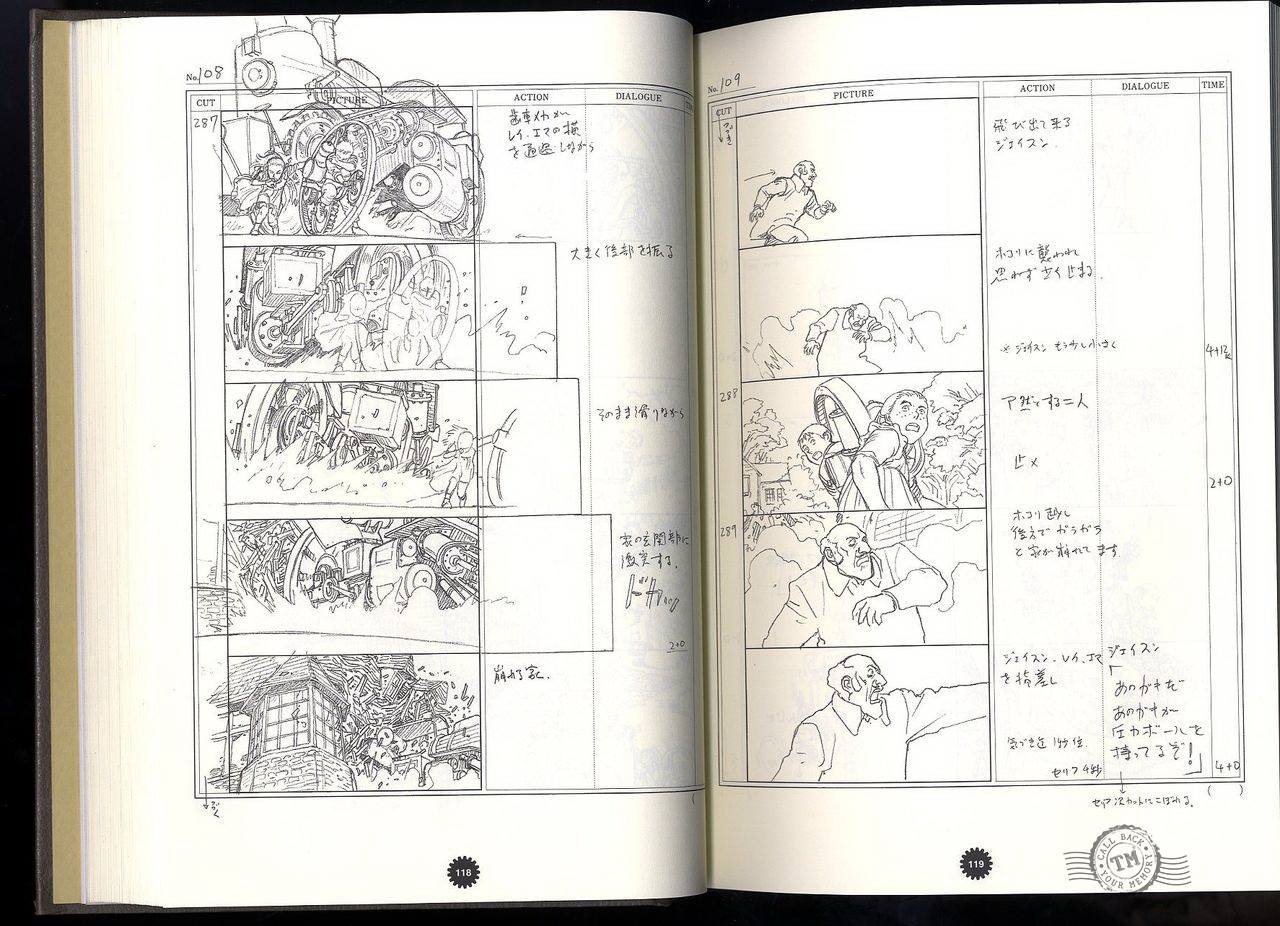 No. 108
CUT
PICTURE
ACTION
DIALOGUE
287
歯車メカが
レイ、エマの横
を通過しながら
大きく後部を振る
そのまま滑りながら
家の玄関部に
激突する。
2+0
崩れる家。
つづく
118
No. 109
CUT
PICTURE
ACTION
DIALOGUE
TIME
つづき
飛び出て来る
ジェイスン
ホコリに襲われ
思わず立ち止まる
※ジェイスン もう少し小さく
4+12
288
ア然とする二人
止メ
2+0
289
ホコリ越し
後方で ガラガラ
と家が崩れてます
ジェイスン、レイ、エマ
を指差し
気づき迄 1秒位
セリフ 4秒
ジェイスン
「あのガキだ
あのガキが
圧力ボールを
持ってるぞ!」
4+0
( )
セリフ次カットにこぼれる。
119
CALL BACK
TM
YOUR MEMORY